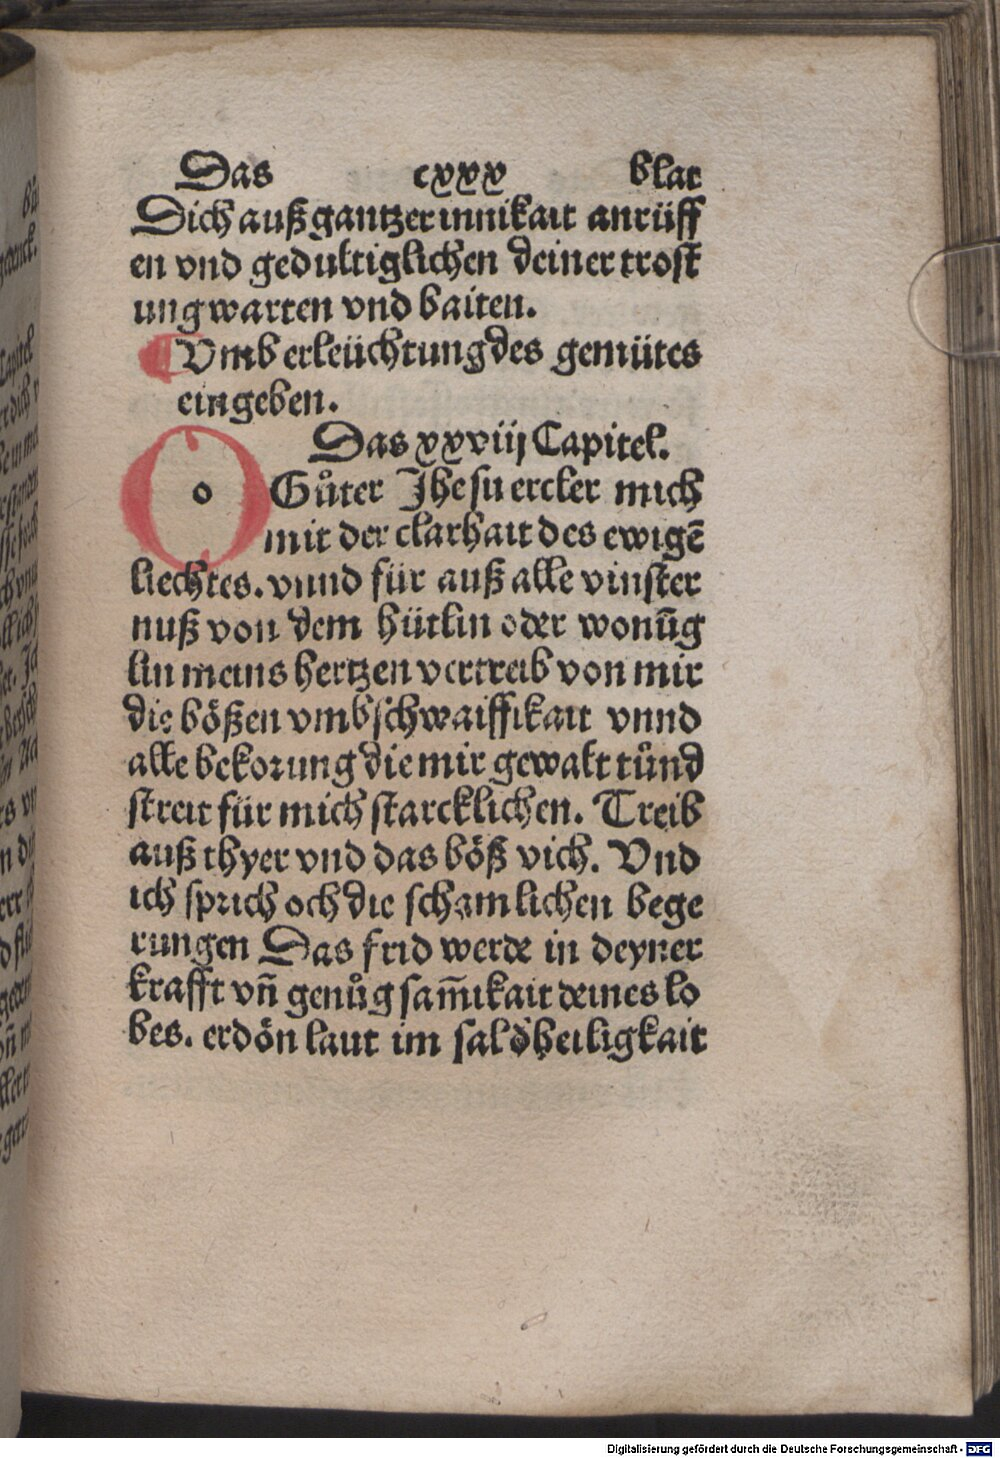 Das cxxx blat
Dich auß gantzer innikait anrüff
en vnd gedultiglichen deiner trost
ung warten vnd baiten.
Vmb erleüchtung des gemütes
eingeben.
Das xxviij Capitel.
O Gůter Jhesu ercler mich
mit der clarhait des ewigē
liechtes. vnnd für auß alle vinster
nuß von dem hütlin oder wonūg
lin meins hertzen vertreib von mir
die bößen vmbschwaiffikait vnnd
alle bekorung die mir gewalt tůnd
streit für mich starcklichen. Treib
auß thyer vnd das böß vich. Vnd
ich sprich och die schamlichen bege
rungen Das frid werde in deyner
krafft vñ genůgsam̄ikait deines lo
bes. erdön laut im sal d̕ heiligkait
Digitalisierung gefördert durch die Deutsche Forschungsgemeinschaft - DFG